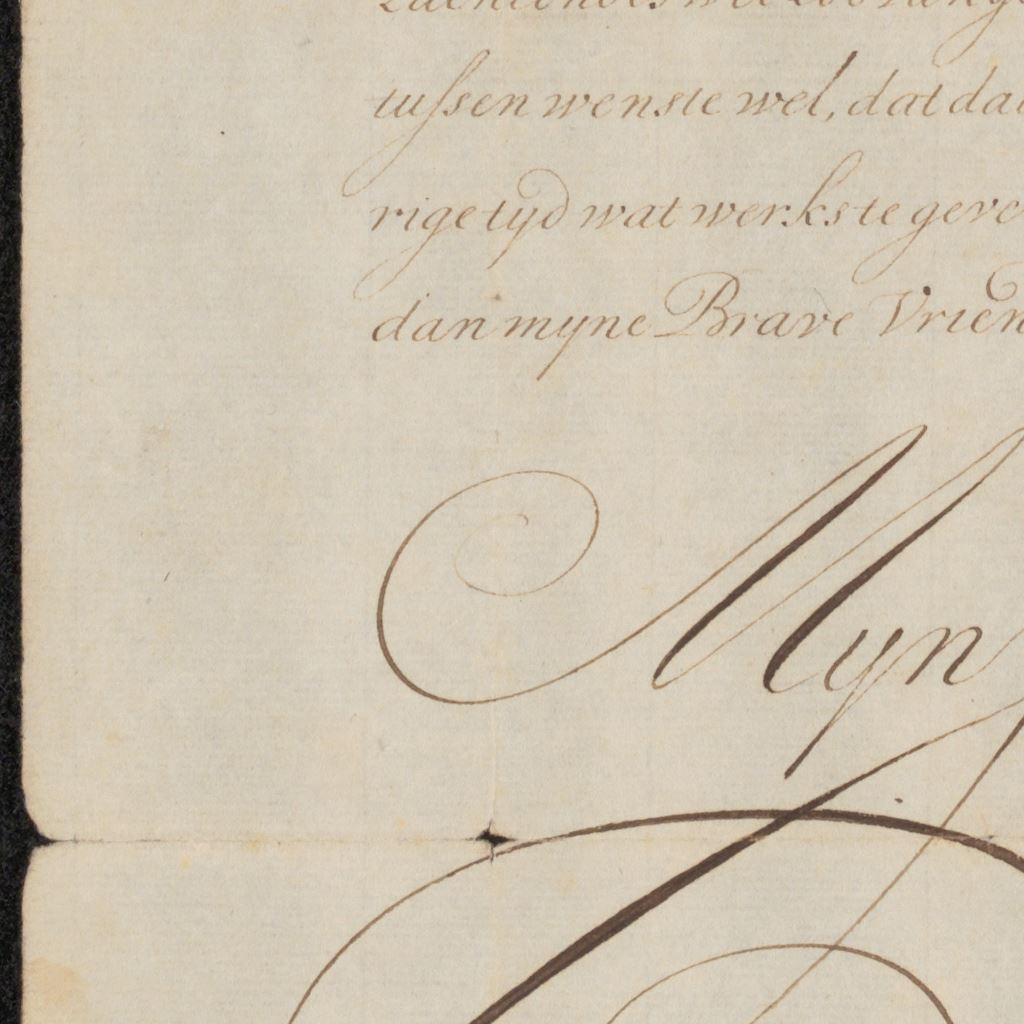 tussen wenste wel, dat dat
rige tyd wat werkste geve
dan myne Brave Vrien
Myn